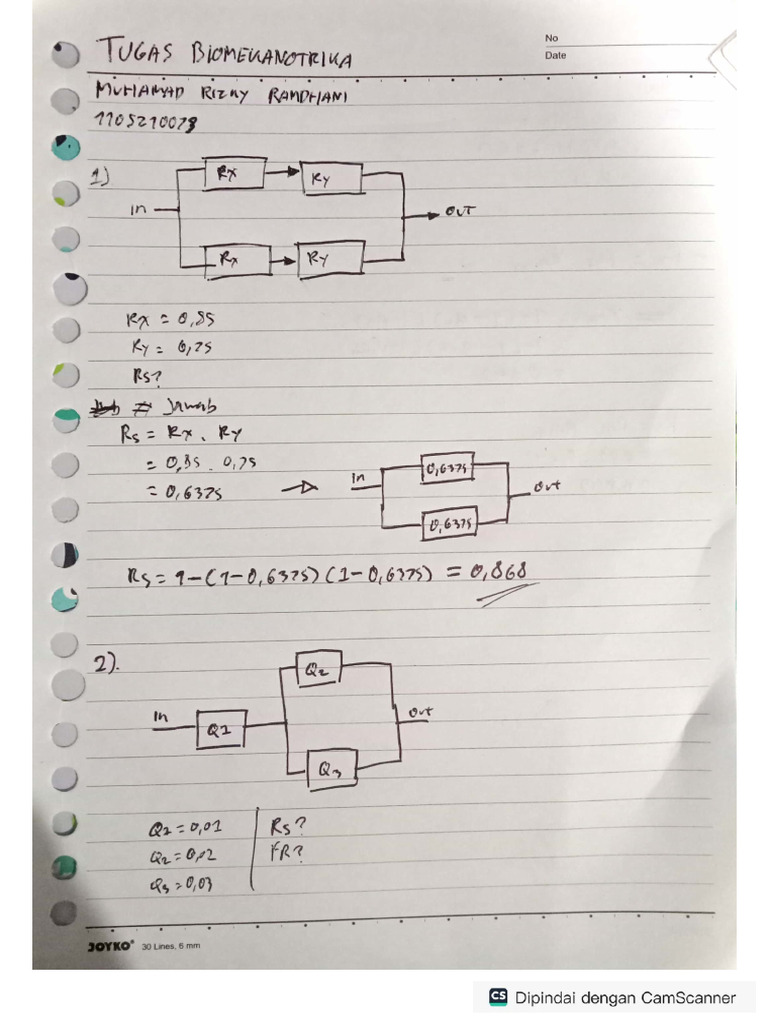 No
Date
TUGAS BIOMEKANOTRIKA
MUHAMAD RIZKY RAMDHANI
1105210078
1)
Rx
Ry
In
OUT
Rx
Ry
Rx = 0,85
Ry = 0,75
Rs?
# Jawab
Rs = Rx . Ry
= 0,85 . 0,75
= 0,6375
In
0,6375
Out
0,6375
Rs = 1-(1-0,6375)(1-0,6375) = 0,868
2).
Q2
In
Q1
Out
Q3
Q1 = 0,01
Rs?
Q2 = 0,02
FR?
Q3 = 0,03
JOYKO® 30 Lines, 6 mm
CS Dipindai dengan CamScanner